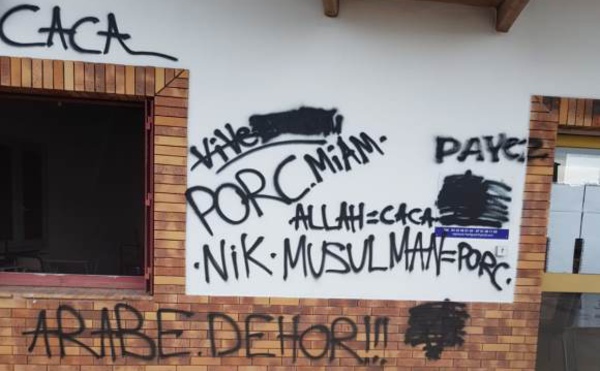 CACA
ViVe
MiAM.
PAYEZ
PORC.
ALLAH=CACA
.NiK.MUSULMAN=PORC.
ARABE.DEHOR!!!